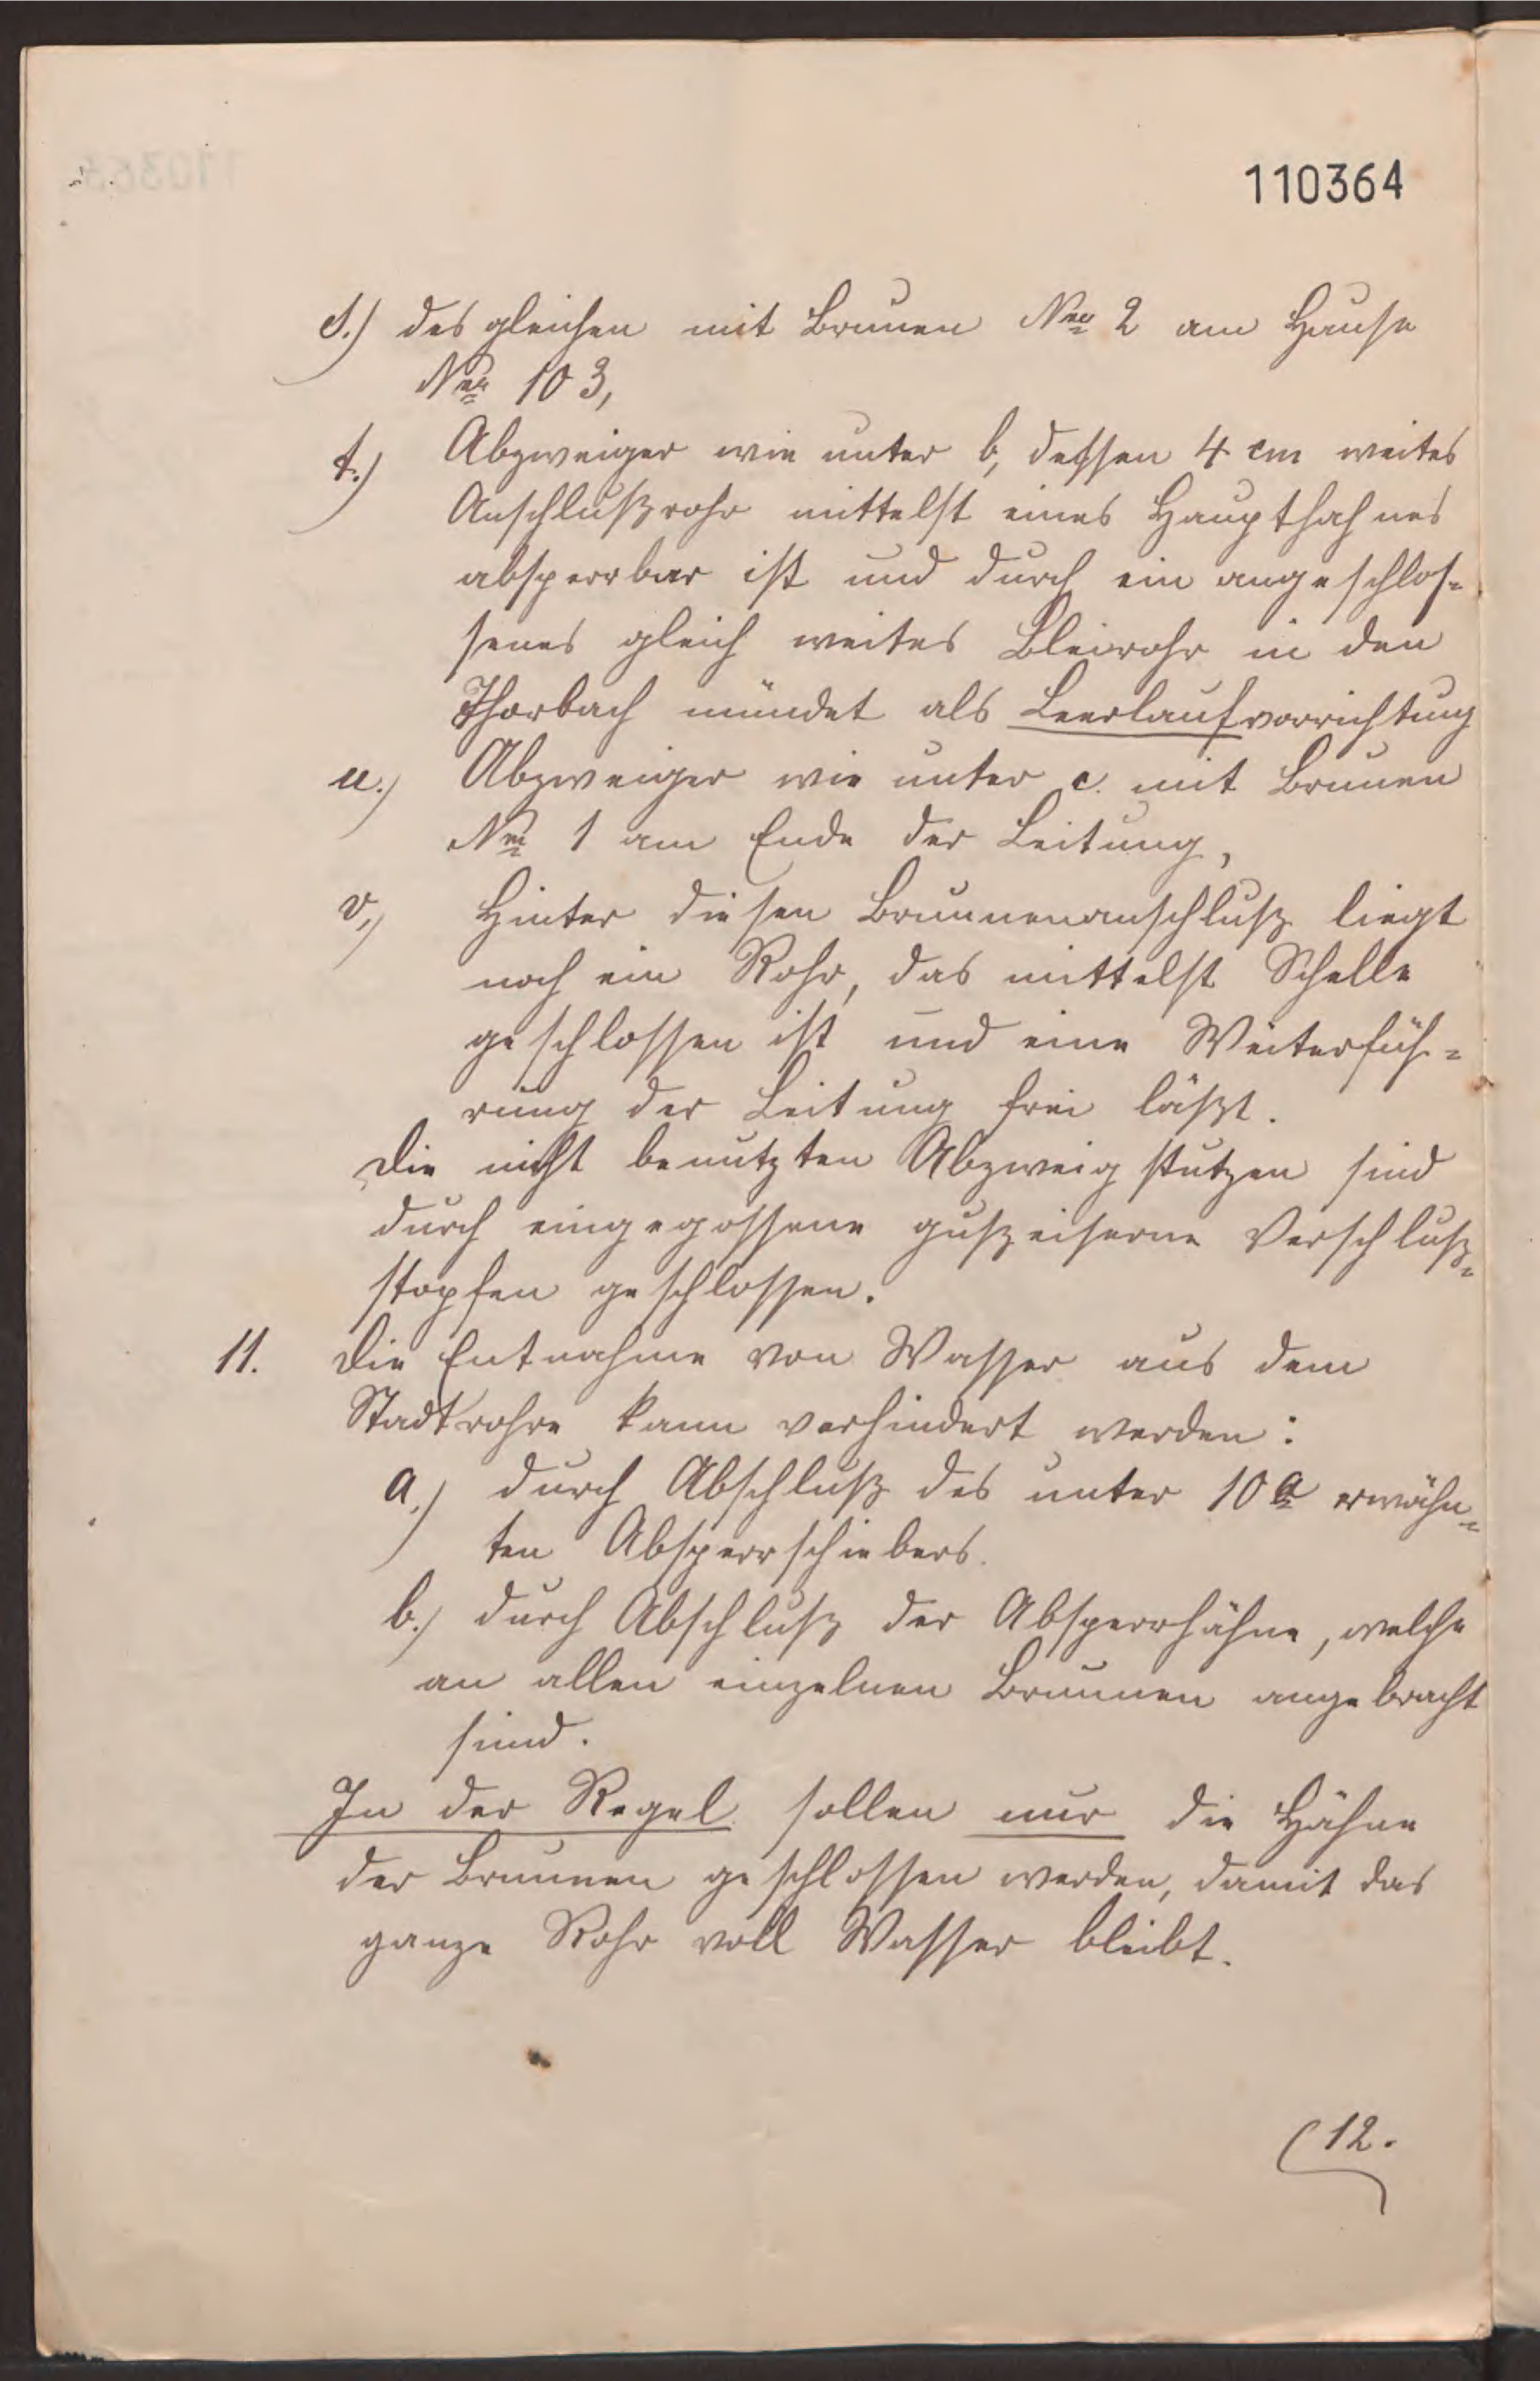 110364
s.) des gleichen mit Brunen Nro 2 am Hause
Nro 103,
t.) Abzweiger wie unter b, dessen 4 cm weites
Anschlußrohr mittelst eines Haupthahnes
absperrbar ist und durch ein angeschlos-
senes gleich weites Bleirohr in den
Thorbach mündet als Leerlaufvorrichtung
u.) Abzweiger wie unter c. mit Brunen
Nro 1 am Ende der Leitung,
v.) Hinter diesen Brunnenanschluß liegt
noch ein Rohr, das mittelst Schelle
geschlossen ist und eine Weiterfüh-
rung der Leitung frei läßt.
Die nicht benutzten Abzweigstutzen sind
durch eingegossene gußeiserne Verschluß-
stopfen geschlossen.
11. Die Entnahme von Wasser aus dem
Stadtrohre kann verhindert werden:
a.) durch Abschluß des unter 10 a erwähn-
ten Absperrschiebers.
b.) durch Abschluß der Absperrhähne, welche
an allen einzelnen Brunnen angebracht
sind.
In der Regel sollen nur die Hähne
der Brunnen geschlossen werden, damit das
ganze Rohr voll Wasser bleibt.
(12.